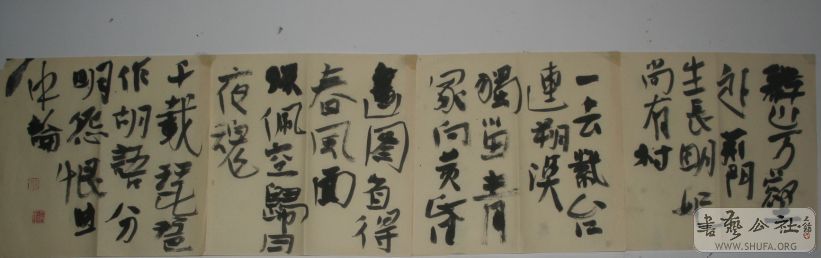 群山万壑
赴荊門
生長明妃
尚有村
一去紫台
連朔漠
獨留青
冢向黄昏
畫圖省得
春風面
環佩空歸月
夜魂
千載琵琶
作胡語分
明怨恨曲
中論
書藝公社
WWW.SHUFA.ORG